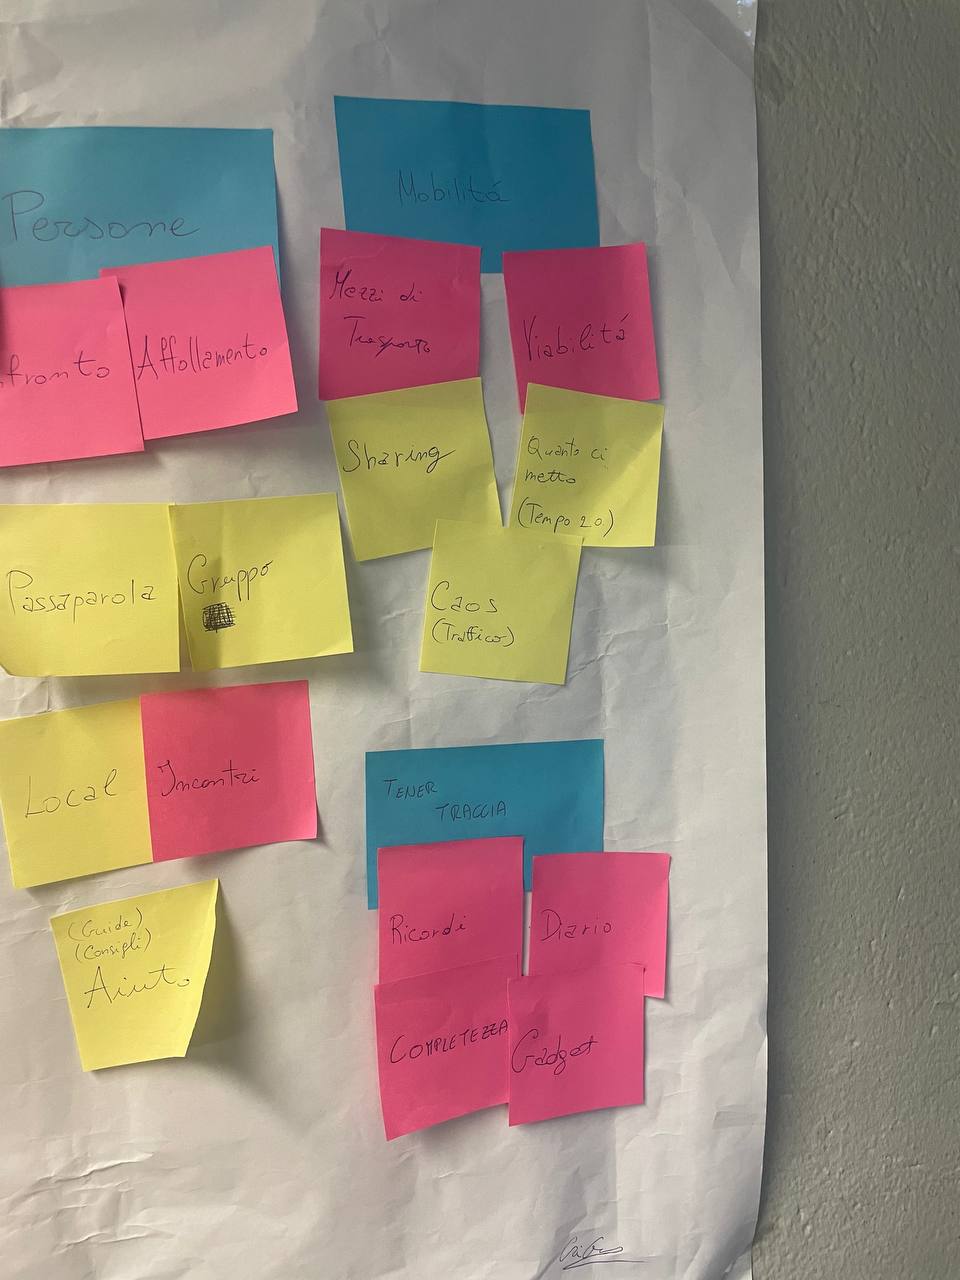 Persone
nfronto
Affollamento
Passaparola
Gruppo
Local
Incontri
(Guide)
(Consigli)
Aiuto
Mobilitá
Mezzi di
Trasporto
Viabilitá
Sharing
Quanto ci
metto
(Tempo 2.0.)
Caos
(Traffico)
TENER
TRACCIA
Ricordi
Diario
COMPLETEZZA
Gadget